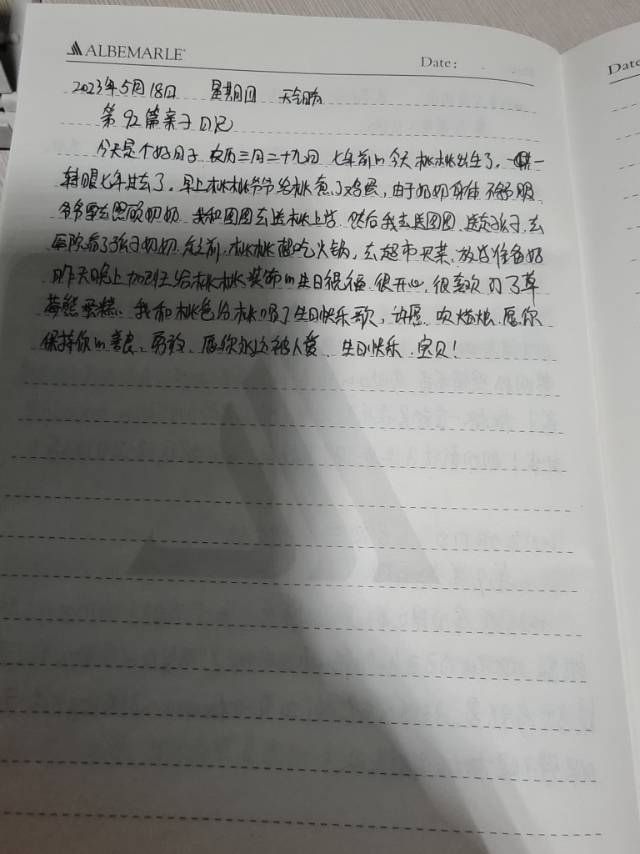 ALBEMARLE
Date:
Date
2023年5月18日 星期四 天气晴
第92篇亲子日记
今天是个好日子 农历三月二十九日 七年前的今天桃桃出生了。一
转眼七年过去了。早上桃桃爷爷给桃煮了鸡蛋,由于奶奶身体不舒服
爷爷要去照顾奶奶 我和图图去送桃上学 然后我去送图图 送完孩子,去
医院看了孩子奶奶 桃桃想吃火锅,去超市买菜、放学准备好
昨天晚上给桃桃装饰的生日很 很开心,很喜欢 订了草
莓熊蛋糕、我和桃爸给桃唱了生日快乐歌,许愿、吹蜡烛.愿你
保持你的善良、勇敢、愿你永远被人爱、生日快乐、宝贝!